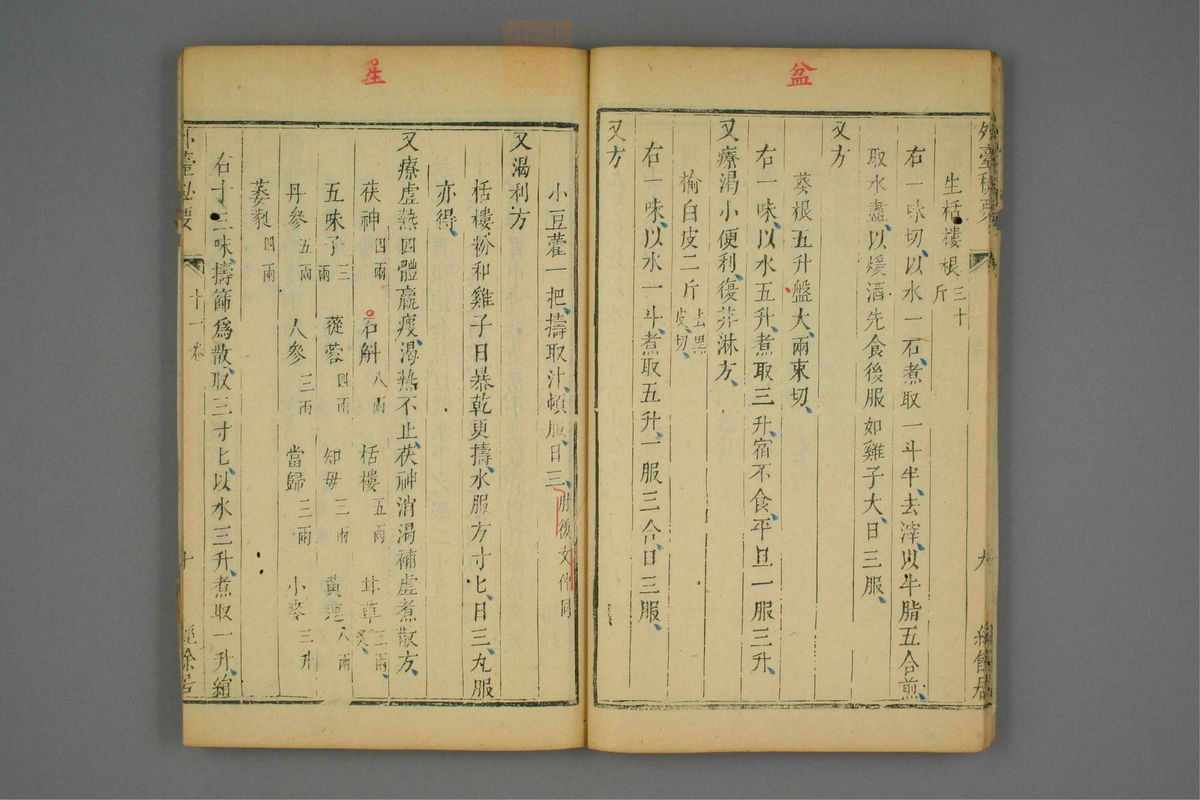 盆
外臺秘要
生栝樓根三十斤
右一味切以水一石煮取一斗半去滓以牛脂五合煎
取水盡以煖酒先食後服如雞子大日三服
又方
葵根五升盤大兩束切
右一味以水五升煮取三升宿不食平旦一服三升
又療渴小便利復非淋方
榆白皮二斤去黑皮切
右一味以水一斗煮取五升一服三合日三服
又方
九
經餘居
星
小豆藿一把擣取汁頓服日三肘後文仲同
又渴利方
栝樓粉和雞子日暴乾更擣水服方寸匕日三丸服
亦得
又療虛熱四體羸瘦渴熱不止茯神消渴補虛煮散方
茯神四兩 石斛八兩 栝樓五兩 甘草三兩炙
五味子三兩 蓯蓉四兩 知母三兩 黃連八兩
丹參五兩 人參三兩 當歸三兩 小麥三升
葳蕤四兩
右十三味擣篩爲散取三寸匕以水三升煮取一升絹
外臺秘要
十一卷
十
經餘居